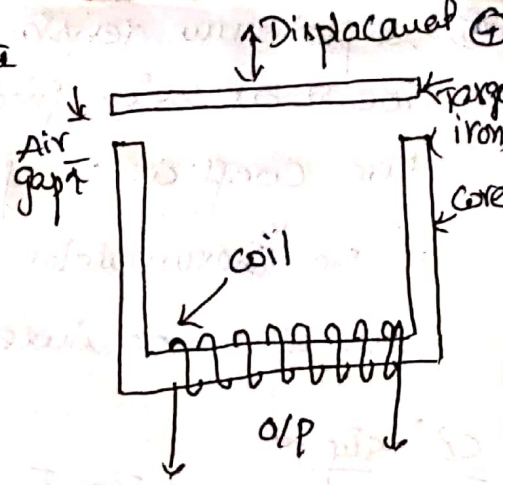 Displacanal
Targe
iron
Air
gap
core
coil
O/P